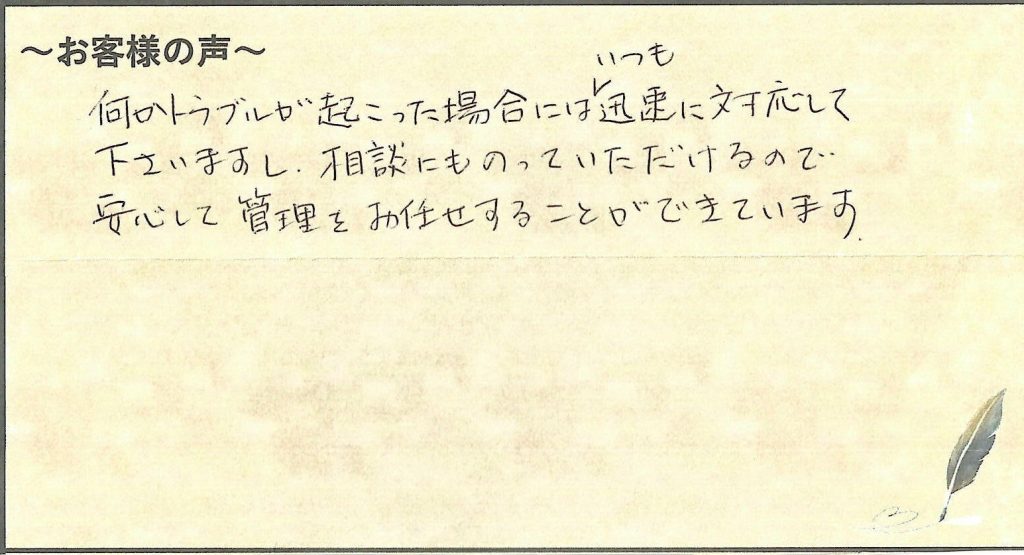 ～お客様の声～
いつも
何かトラブルが起こった場合には迅速に対応して
下さいますし、相談にものっていただけるので、
安心して管理をお任せすることができています。